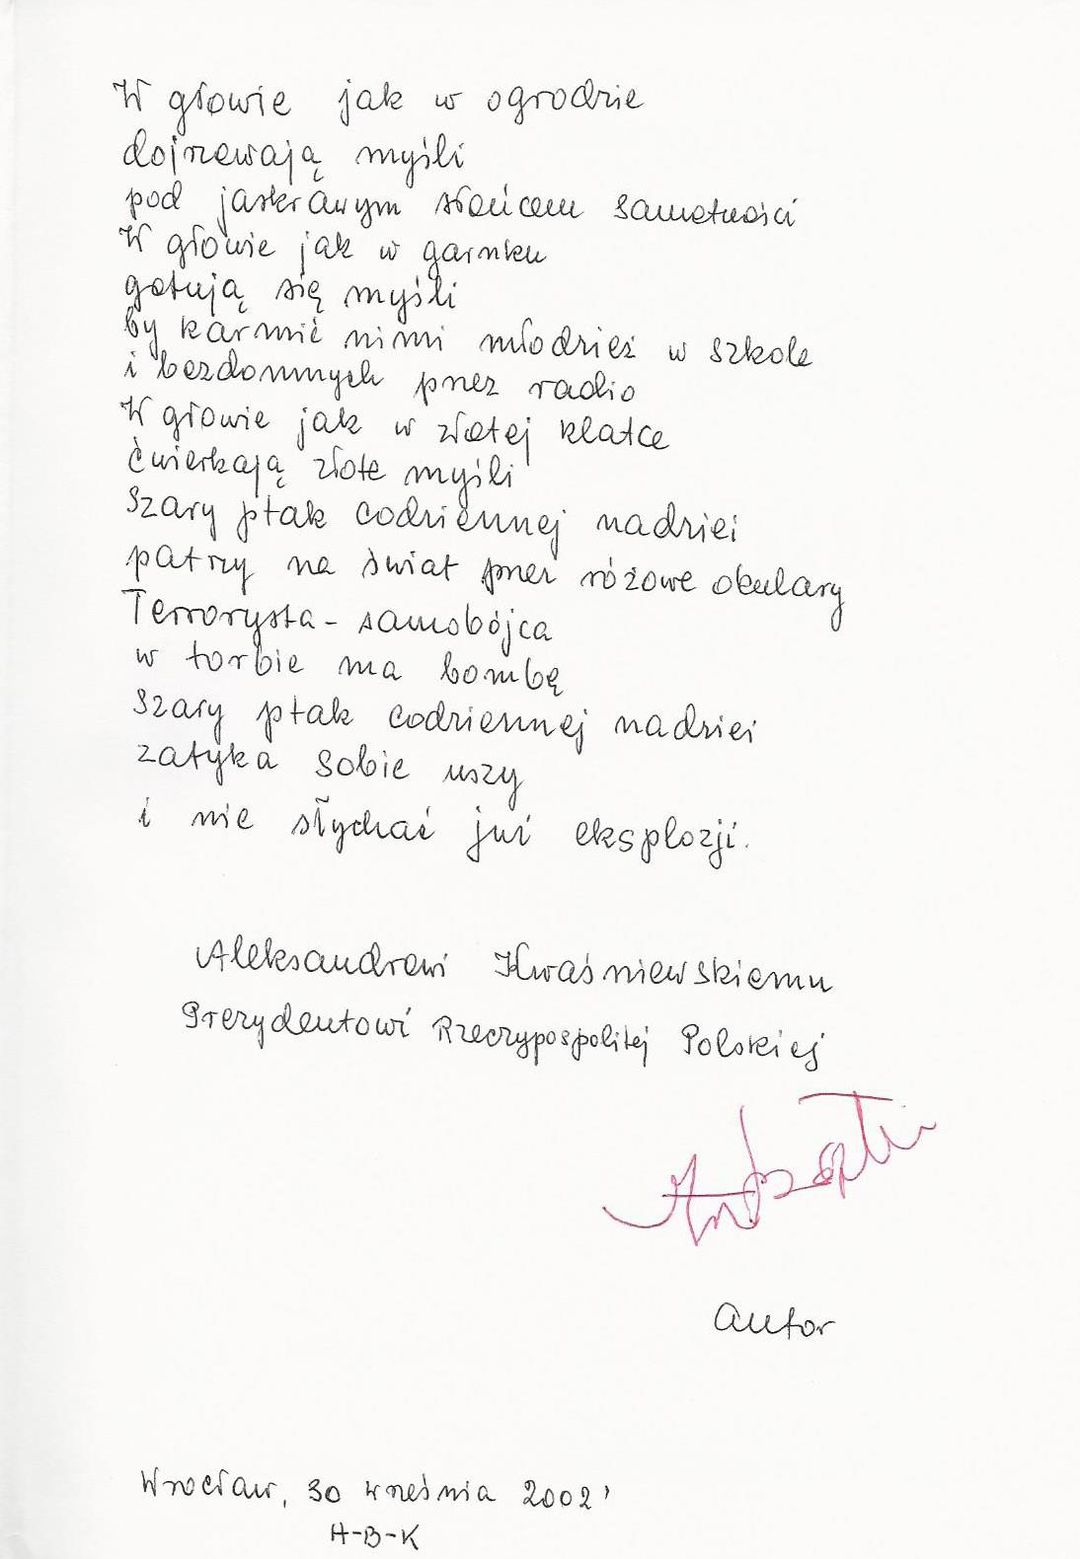 W głowie jak w ogrodzie
dojrzewają myśli
pod jaskrawym słońcem samotności
W głowie jak w garnku
gotują się myśli
by karmić nimi młodzież w szkole
i bezdomnych przez radio
W głowie jak w złotej klatce
ćwierkają złote myśli
Szary ptak codziennej nadziei
patrzy na świat przez różowe okulary
Terrorysta - samobójca
w torbie ma bombę
Szary ptak codziennej nadziei
zatyka sobie uszy
i nie słychać już eksplozji.
Aleksandrowi Kwaśniewskiemu
Prezydentowi Rzeczypospolitej Polskiej
autor
Wrocław, 30 września 2002'
H-B-K